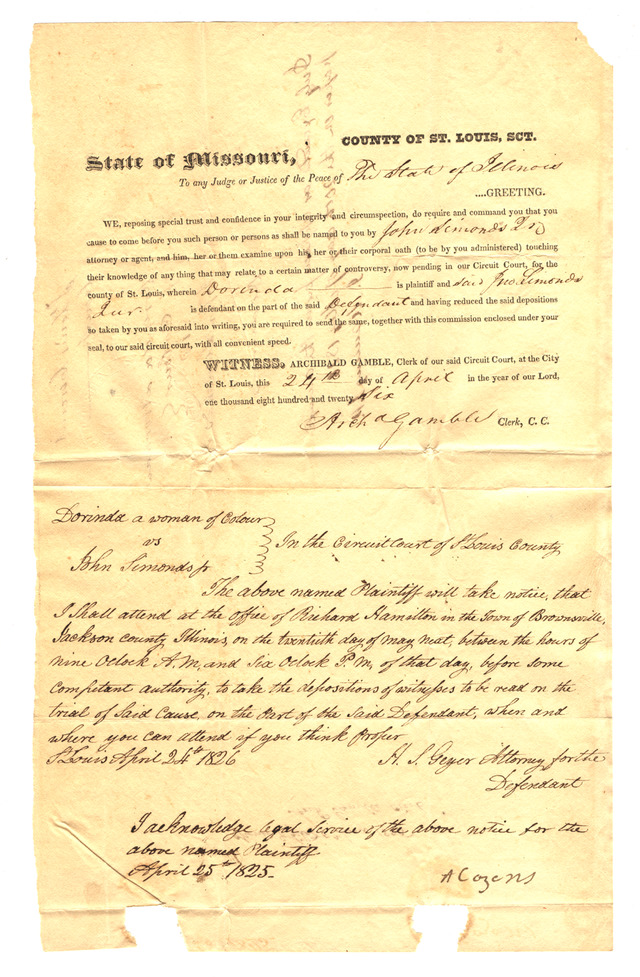 COUNTY OF ST. LOUIS, SCT.
State of Missouri,
To any Judge or Justice of the Peace of The State of Illinois
....GREETING.
WE, reposing special trust and confidence in your integrity and circumspection, do require and command you that you
cause to come before you such person or persons as shall be named to you by John Simonds Jr
attorney or agent, and him, her or them examine upon his, her or their corporal oath (to be by you administered) touching
their knowledge of any thing that may relate to a certain matter of controversy, now pending in our Circuit Court, for the
county of St. Louis, wherein Dorinda is plaintiff and said Jno. Simonds
Jur is defendant on the part of the said Defendant and having reduced the said depositions
so taken by you as aforesaid into writing, you are required to send the same, together with this commission enclosed under your
seal, to our said circuit court, with all convenient speed.
WITNESS, ARCHIBALD GAMBLE, Clerk of our said Circuit Court, at the City
of St. Louis, this 24th day of April in the year of our Lord,
one thousand eight hundred and twenty Six
Archd Gamble Clerk, C. C.
Dorinda a woman of Colour
vs
John Simonds jr
In the Circuit Court of St Louis County
The above named Plaintiff will take notice, that
I Shall attend at the office of Richard Hamilton in the Town of Brownsville,
Jackson county Illinois, on the twentieth day of may next, between the hours of
nine Oclock A.M, and Six Oclock P.M, of that day, before some
competant authority, to take the depositions of witnesses to be read on the
trial of Said Cause, on the Part of the Said Defendant, when and
where you can attend if you think Proper
St Louis April 24th 1826
H. S. Geyer Attorney for the
Defendant
I acknowledge legal Service of the above notice for the
above named Plaintiff
April 25th 1825.
A Cozens